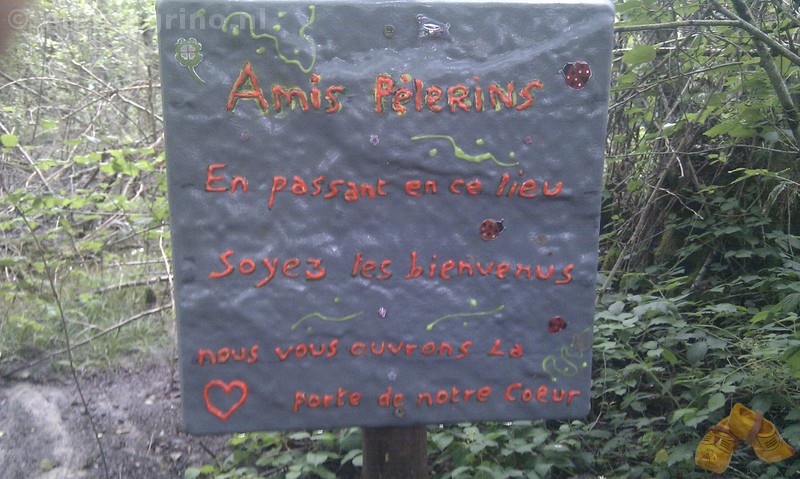 Amis Pèlerins
En passant en ce lieu
Soyez les bienvenus
nous vous ouvrons La
porte de notre Coeur